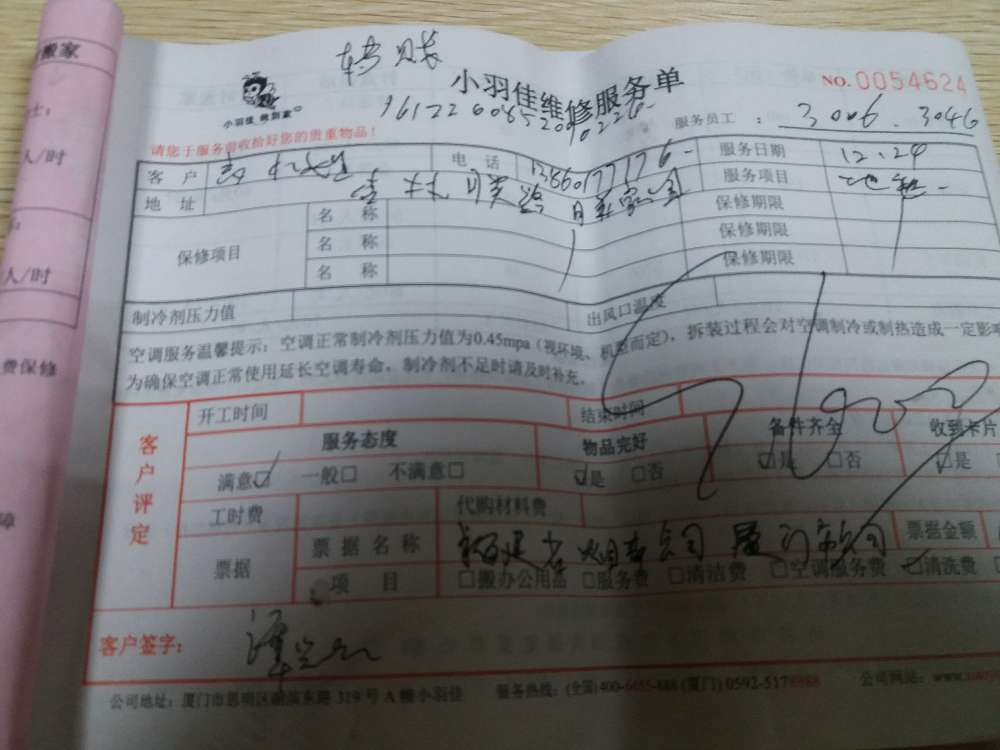 搬家
人/时
人/时
费保修
障
转账
小羽佳 做到家
小羽佳维修服务单
NO.0054624
请您于服务前收拾好您的贵重物品！
服务员工 ： 3006. 3046
客 户
电 话 13860177176
服务日期 12.24
地 址
服务项目
保修项目
名 称
保修期限
名 称
保修期限
名 称
保修期限
制冷剂压力值
出风口温度
空调服务温馨提示：空调正常制冷剂压力值为0.45mpa（视环境、机型而定），拆装过程会对空调制冷或制热造成一定影响
为确保空调正常使用延长空调寿命，制冷剂不足时请及时补充。
客户评定
开工时间
结束时间
服务态度
物品完好
备件齐全
收到卡片
满意☑ 一般□ 不满意□
☑是 □否
☑是 □否
☑是
工时费
代购材料费
票据
票据名称 福建省烟草公司厦门市公司
票据金额
项 目 □搬办公用品 □服务费 □清洁费 □空调服务费 ☑清洗费
客户签字：
公司地址：厦门市思明区湖滨东路 319 号 A 幢小羽佳
服务热线：(全国)400-6655-888 (厦门) 0592-5178988
公司网站：www.